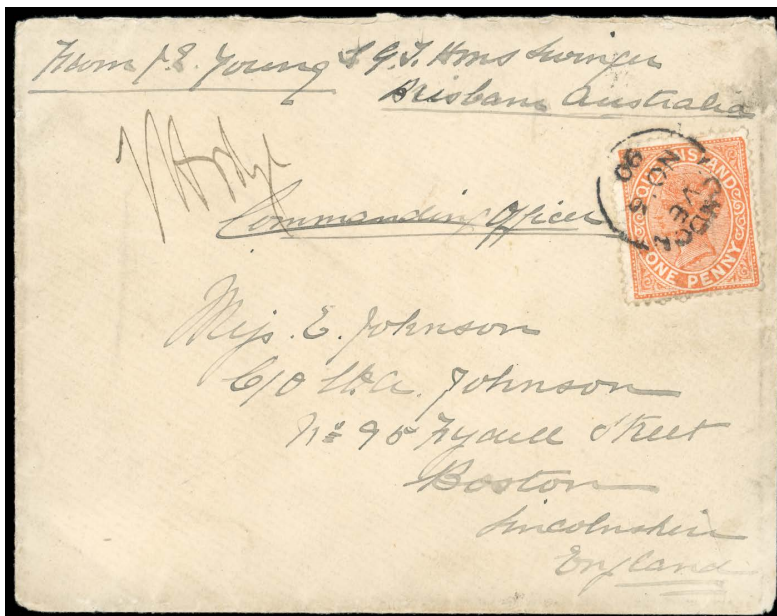 From J. E. Young
H.M.S Swinger
Brisbane Australia
Commanding Officer
QUEENSLAND
ONE PENNY
LONDON
NO 5
90
Miss. E. Johnson
C/O A. Johnson
No 95 Fydell Street
Boston
Lincolnshire
England